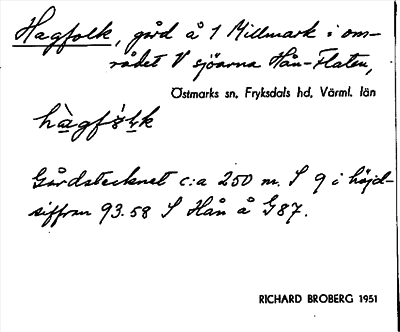 Hagfolk, gård å 1 Millmark i om-
rådet V sjöarna Hån-Flaten,
Östmarks sn, Fryksdals hd, Värml. län
Gårdstecknet c:a 250 m. S 9 i höjd-
siffran 93.58 S Hån å G87.
RICHARD BROBERG 1951